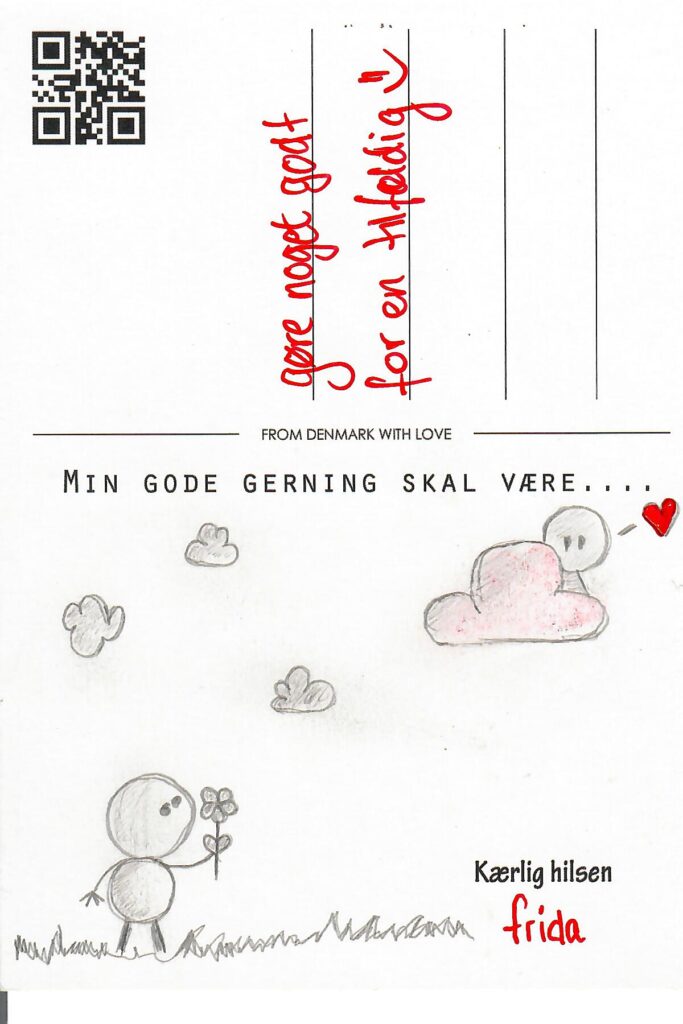 gøre noget godt
for en tilfældig
FROM DENMARK WITH LOVE
MIN GODE GERNING SKAL VÆRE....
Kærlig hilsen
frida